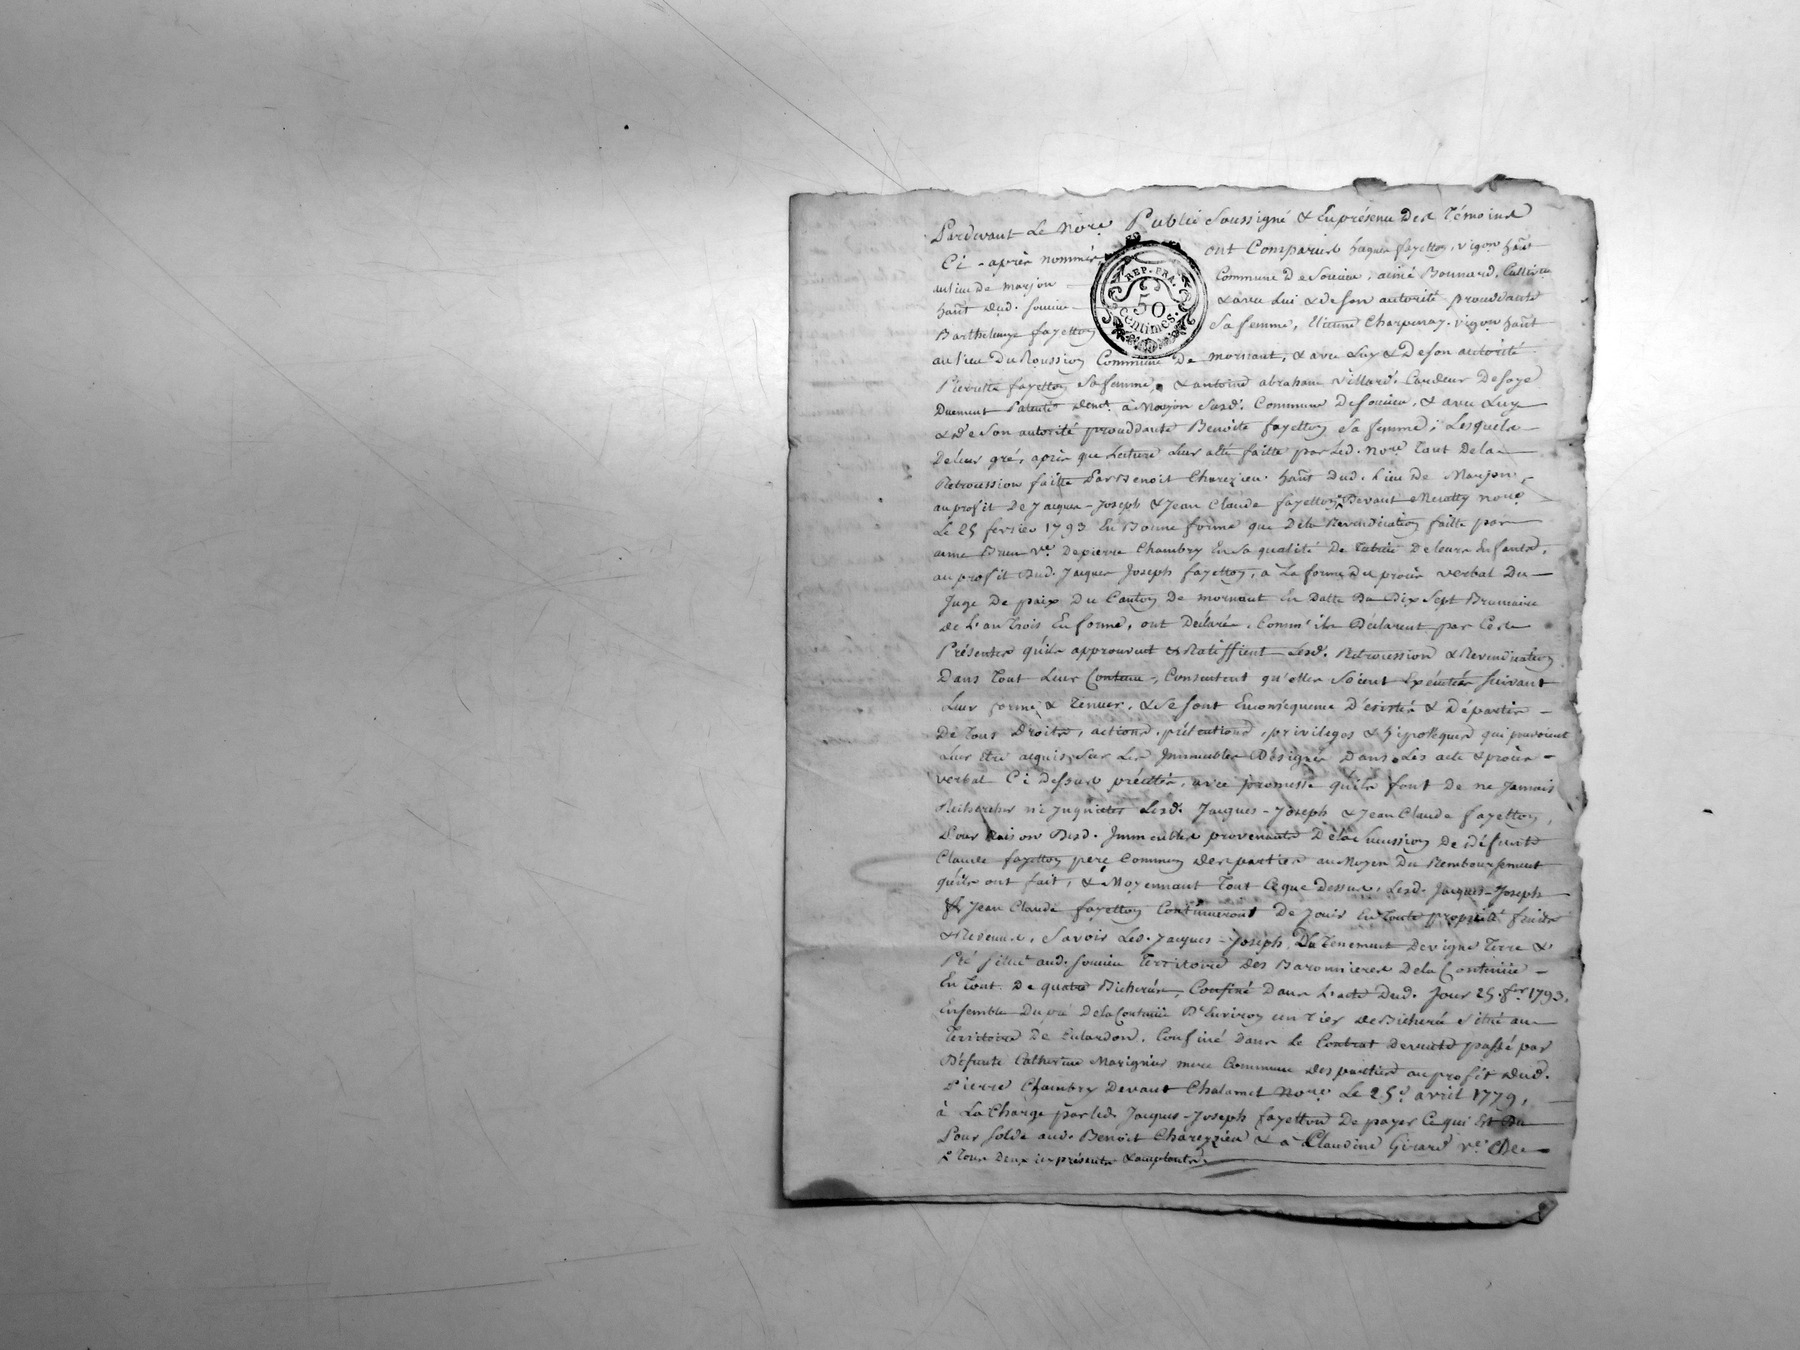 Pardevant Le Nore Public Soussigné & En présence Des Témoins
Ci-après nommés ont Comparus hugues fayetton, vigon hant
au lieu de Marjon Commune De Soucieu, aimé Bonnard, Cultiv
hant dud. Soucieu & avec Lui & de son autorité procédante
Barthelemye fayetton Sa femme, Etienne Charpenay, vigon hant
REP. FRA.
50
Centimes.
au lieu Du Roussion Commune De Mornant, & avec Luy & De son autorité
Pierrette fayetton Sa femme, & antoine abraham Villard. Cardeur De soye
Duement Patenté demt. à Susd. Commune De Soucieu, & avec Luy
& De Son autorité procddante Benoite fayetton Sa femme, Lesquels
De leur gré, après que Lecture Leur a été faitte par Led. Nore Tout De la
Retrocession faitte Par Benoit Charezieu hant Dud. Lieu De Marjon,
au profit De Jacques-Joseph & Jean Claude fayetton, Devant nore
Le 25 fevrier 1793 En Bonne forme que De la Revendication faitte par
anne Brun ve. De pierre Chambry En Sa qualité De Tutrice De leurs Enfants,
au profit Dud. Jacques Joseph fayetton, à La forme Du procès verbal Du
Juge De paix Du Canton De Mornant En Datte Du Dix Sept Brumaire
De L'an Trois En forme, ont Déclaré, Comm' ils Déclarent par Ces
Présentes qu'ils approuvent & Ratiffient Lesd. Retrocession & Revendication
Dans Tout Leur Contenu, Consentent qu'elles Soient Exécutées Suivant
Leur forme & Teneur, & Se sont En conséquence Désistés & Départis
De Tous Droits, actions, prétentions, privileges & hipotèques qui pouvoient
Leur être acquis, Sur Les Immeubles Désignés Dans Les acte & procès
verbal Ci Dessus précités, avec promesse qu'ils font De ne Jamais
Rechercher ni Inquieter Lesd. Jacques-Joseph & Jean Claude fayetton,
Pour Raison Desd. Immeubles provenants De la Succession De Défunt
Claude fayetton père Commun Des parties au Moyen Du Remboursement
qu'ils ont fait, & Moyennant Tout Ce que Dessus, Lesd. Jacques-Joseph
& Jean Claude fayetton Continueront De Jouir En Toute propriété fruits
& Revenus, Savoir Led. Jacques-Joseph, Du Tenement De vigne Terre &
Pré Situé aud. Soucieu Territoire Des Baronnieres De la Contenüe
En Tout De quatre Bicherées, Confiné Dans L'acte Dud. Jour 25 fer. 1793,
Ensemble Du pré De la Contenüe D'Environ un Tier De Bicherée Situé au
Territoire De Eulardon, Confiné Dans Le Contrat De vente passé par
Défunte Catherine Marignier mere Commune Des parties au profit Dud.
Pierre Chambry Devant Chalamet Nore Le 25e. avril 1779,
à La Charge par led. Jacques-Joseph fayetton De payer Ce qui Est Du
Pour Solde aud. Benoit Charezieu & à Claudine Girard ve. De
Tous Deux ici présents & acceptants